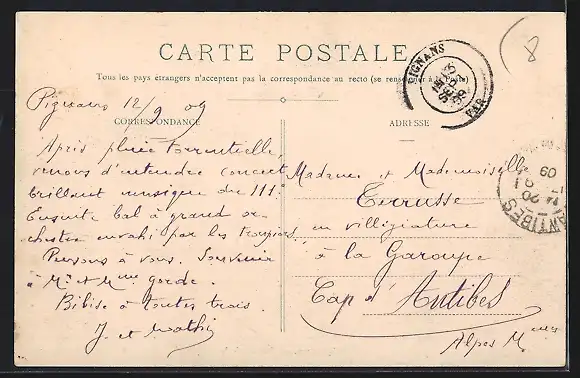 CARTE POSTALE
Tous les pays étrangers n'acceptent pas la correspondance au recto (se renseigner à la Poste)
PIGNANS
VAR
8
Pignans 12/9 09
CORRESPONDANCE
ADRESSE
Après pluie torrentielle,
venons d'entendre concert
brillant musique du 111.
Ensuite bal à grand or-
chestre envahi par les troupiers
Pensons à vous. Souvenir
à Mr et Mme Gorde.
Bibise à toutes trois.
J. et Mathi
Madame et Mademoiselle
Terrusse
en villégiature
à la Garoupe
Cap d'Antibes
Alpes Mmes
ANTIBES
09